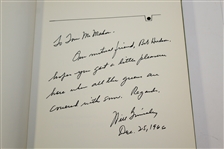 To Tom McMahon.
Our mutual friend, Bob Harlow,
hopes you get a little pleasure
here when all the greens are
covered with snow. Regards,
Will Grimsley
Dec. 25, 1966